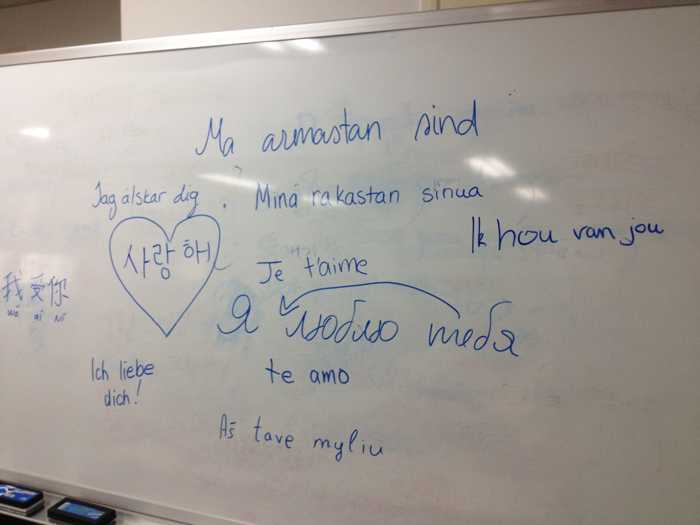 Ma armastan sind
Jag älskar dig.
Minä rakastan sinua
Ik hou van jou
사랑해
Je t'aime
我受你
wǒ ai nǐ
Я люблю тебя
Ich liebe
dich!
te amo
Aš tave myliu